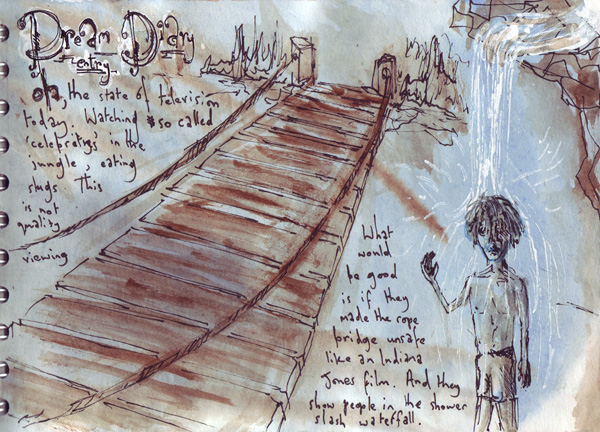 Dream Diary
entry
Oh, the state of television
today. Watching so called
'celebrities' in the
jungle, eating
slugs. This
is not
quality
viewing
What
would
be good
is if they
made the rope
bridge unsafe
like an Indiana
Jones film. And they
show people in the shower
slash waterfall.